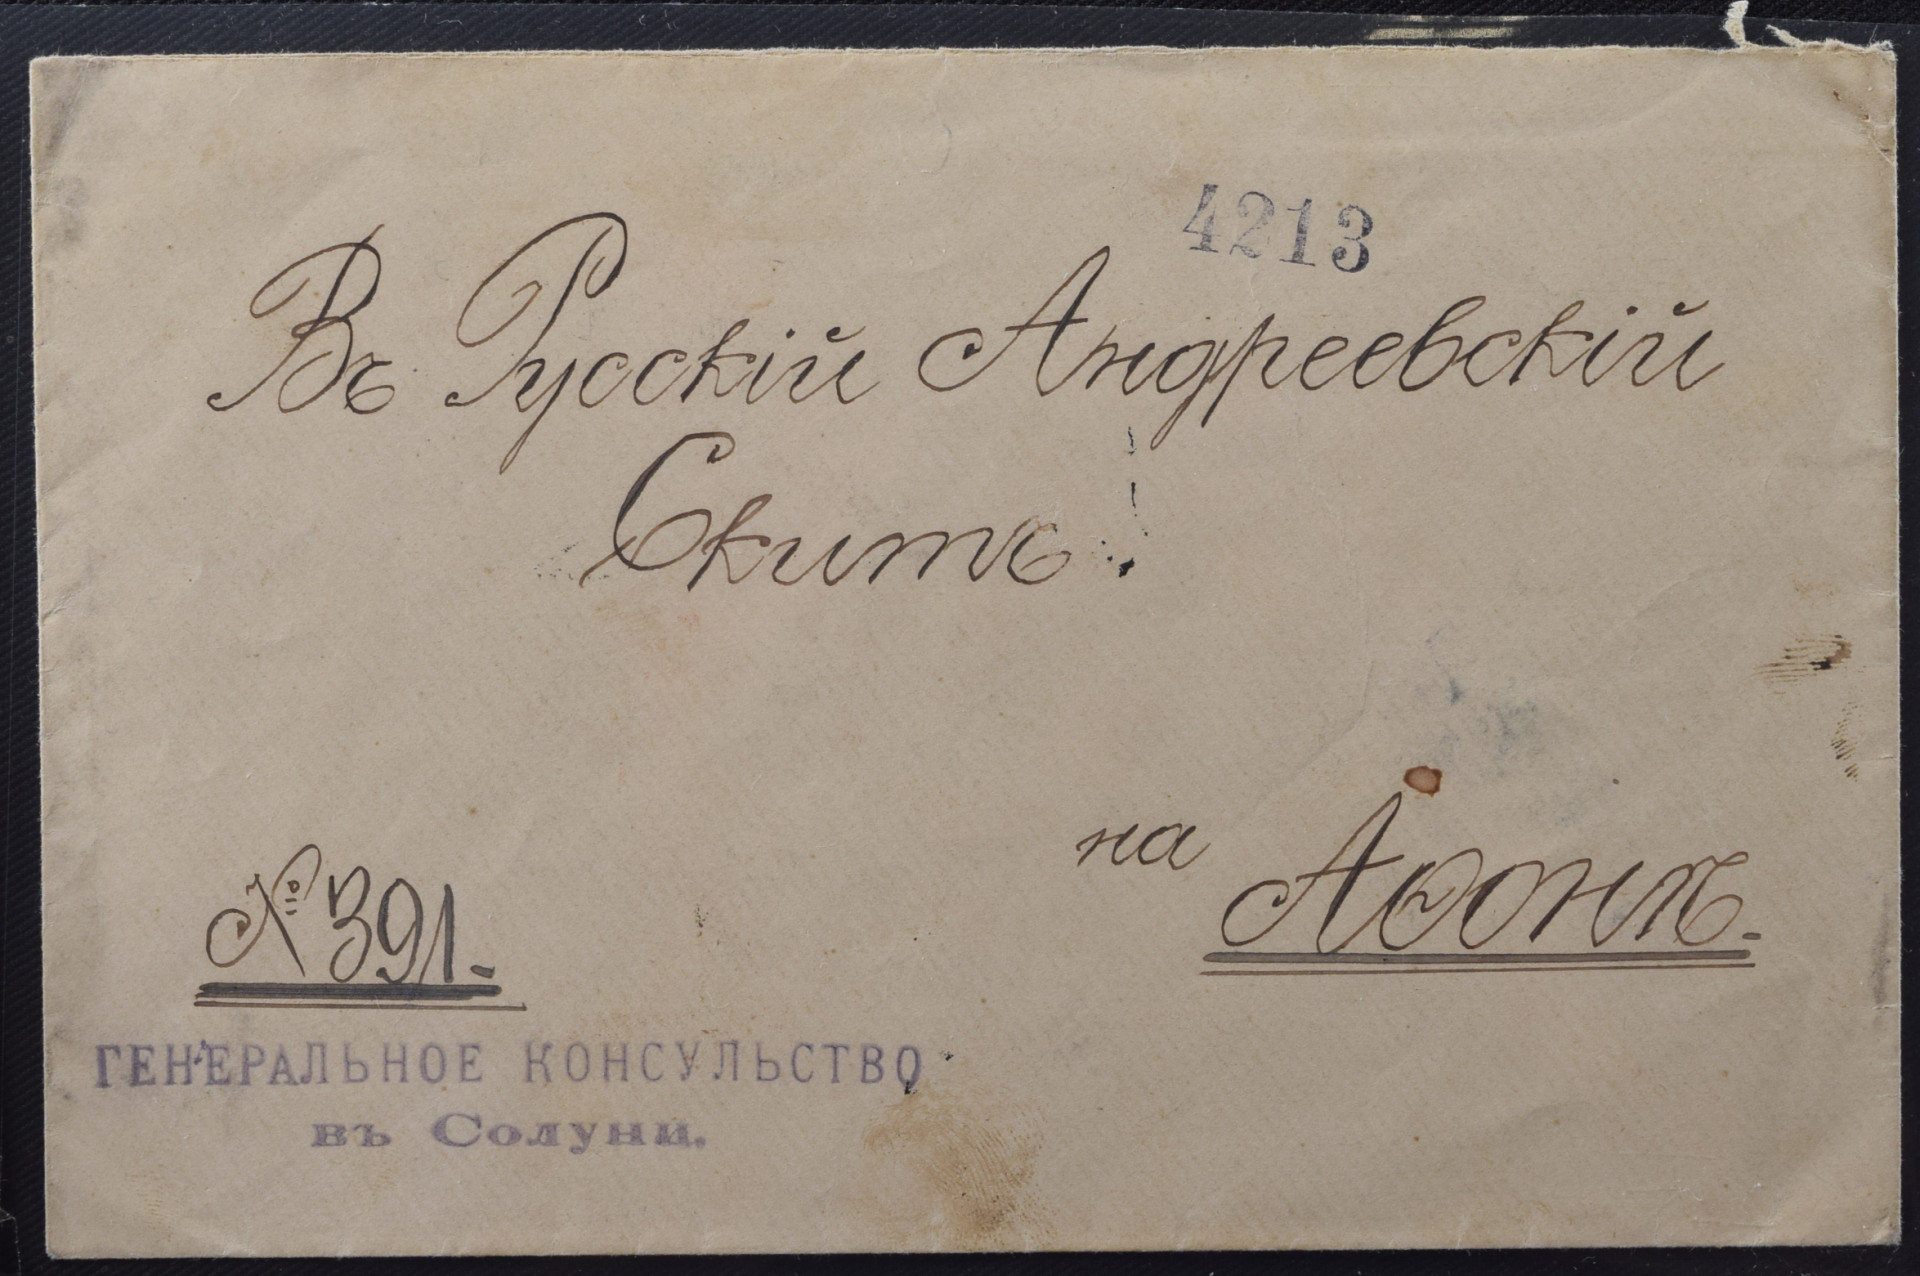 4213
Въ Русскій Андреевскій
Скитъ
на Аѳонъ.
№ 391.
ГЕНЕРАЛЬНОЕ КОНСУЛЬСТВО
въ Солуни.